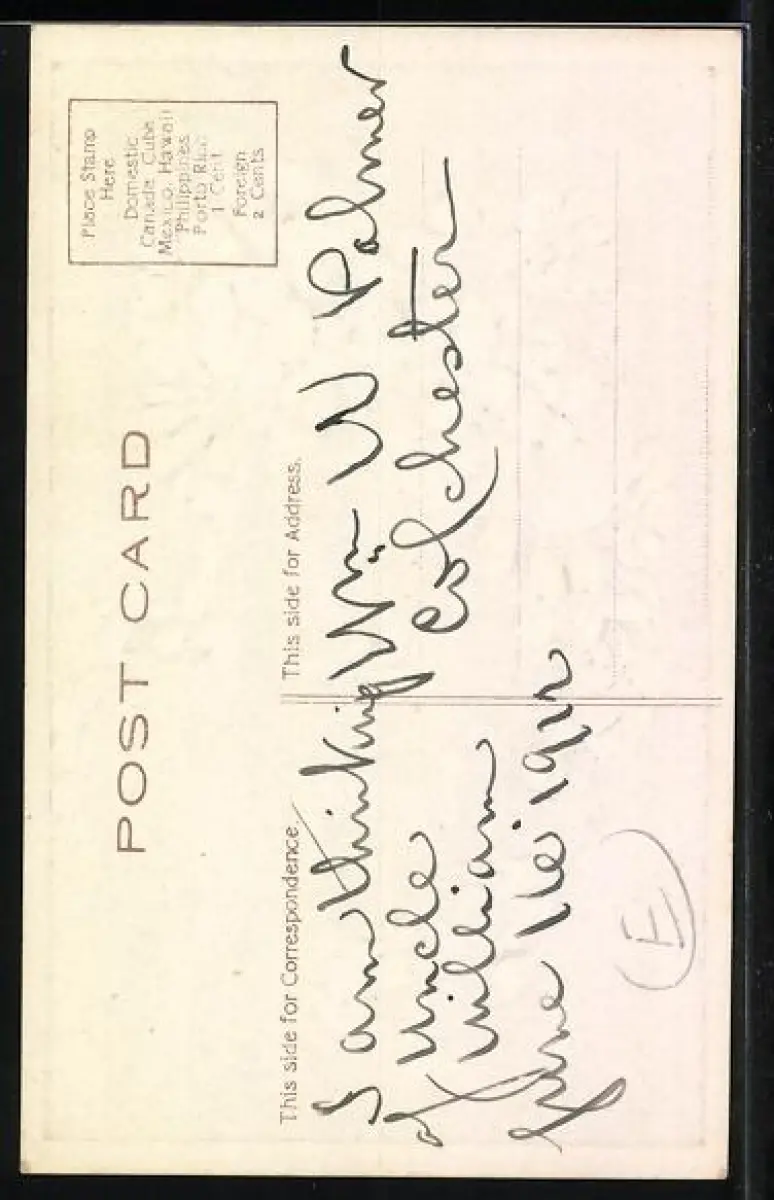 POST CARD
Place Stamp
Here
Domestic
Canada, Cuba
Mexico, Hawaii
Philippines
Porto Rico
1 Cent
Foreign
2 Cents
This side for Correspondence.
This side for Address.
I am thinking
of Uncle
William
June 16 1912
Wm W Palmer
Colchester
E